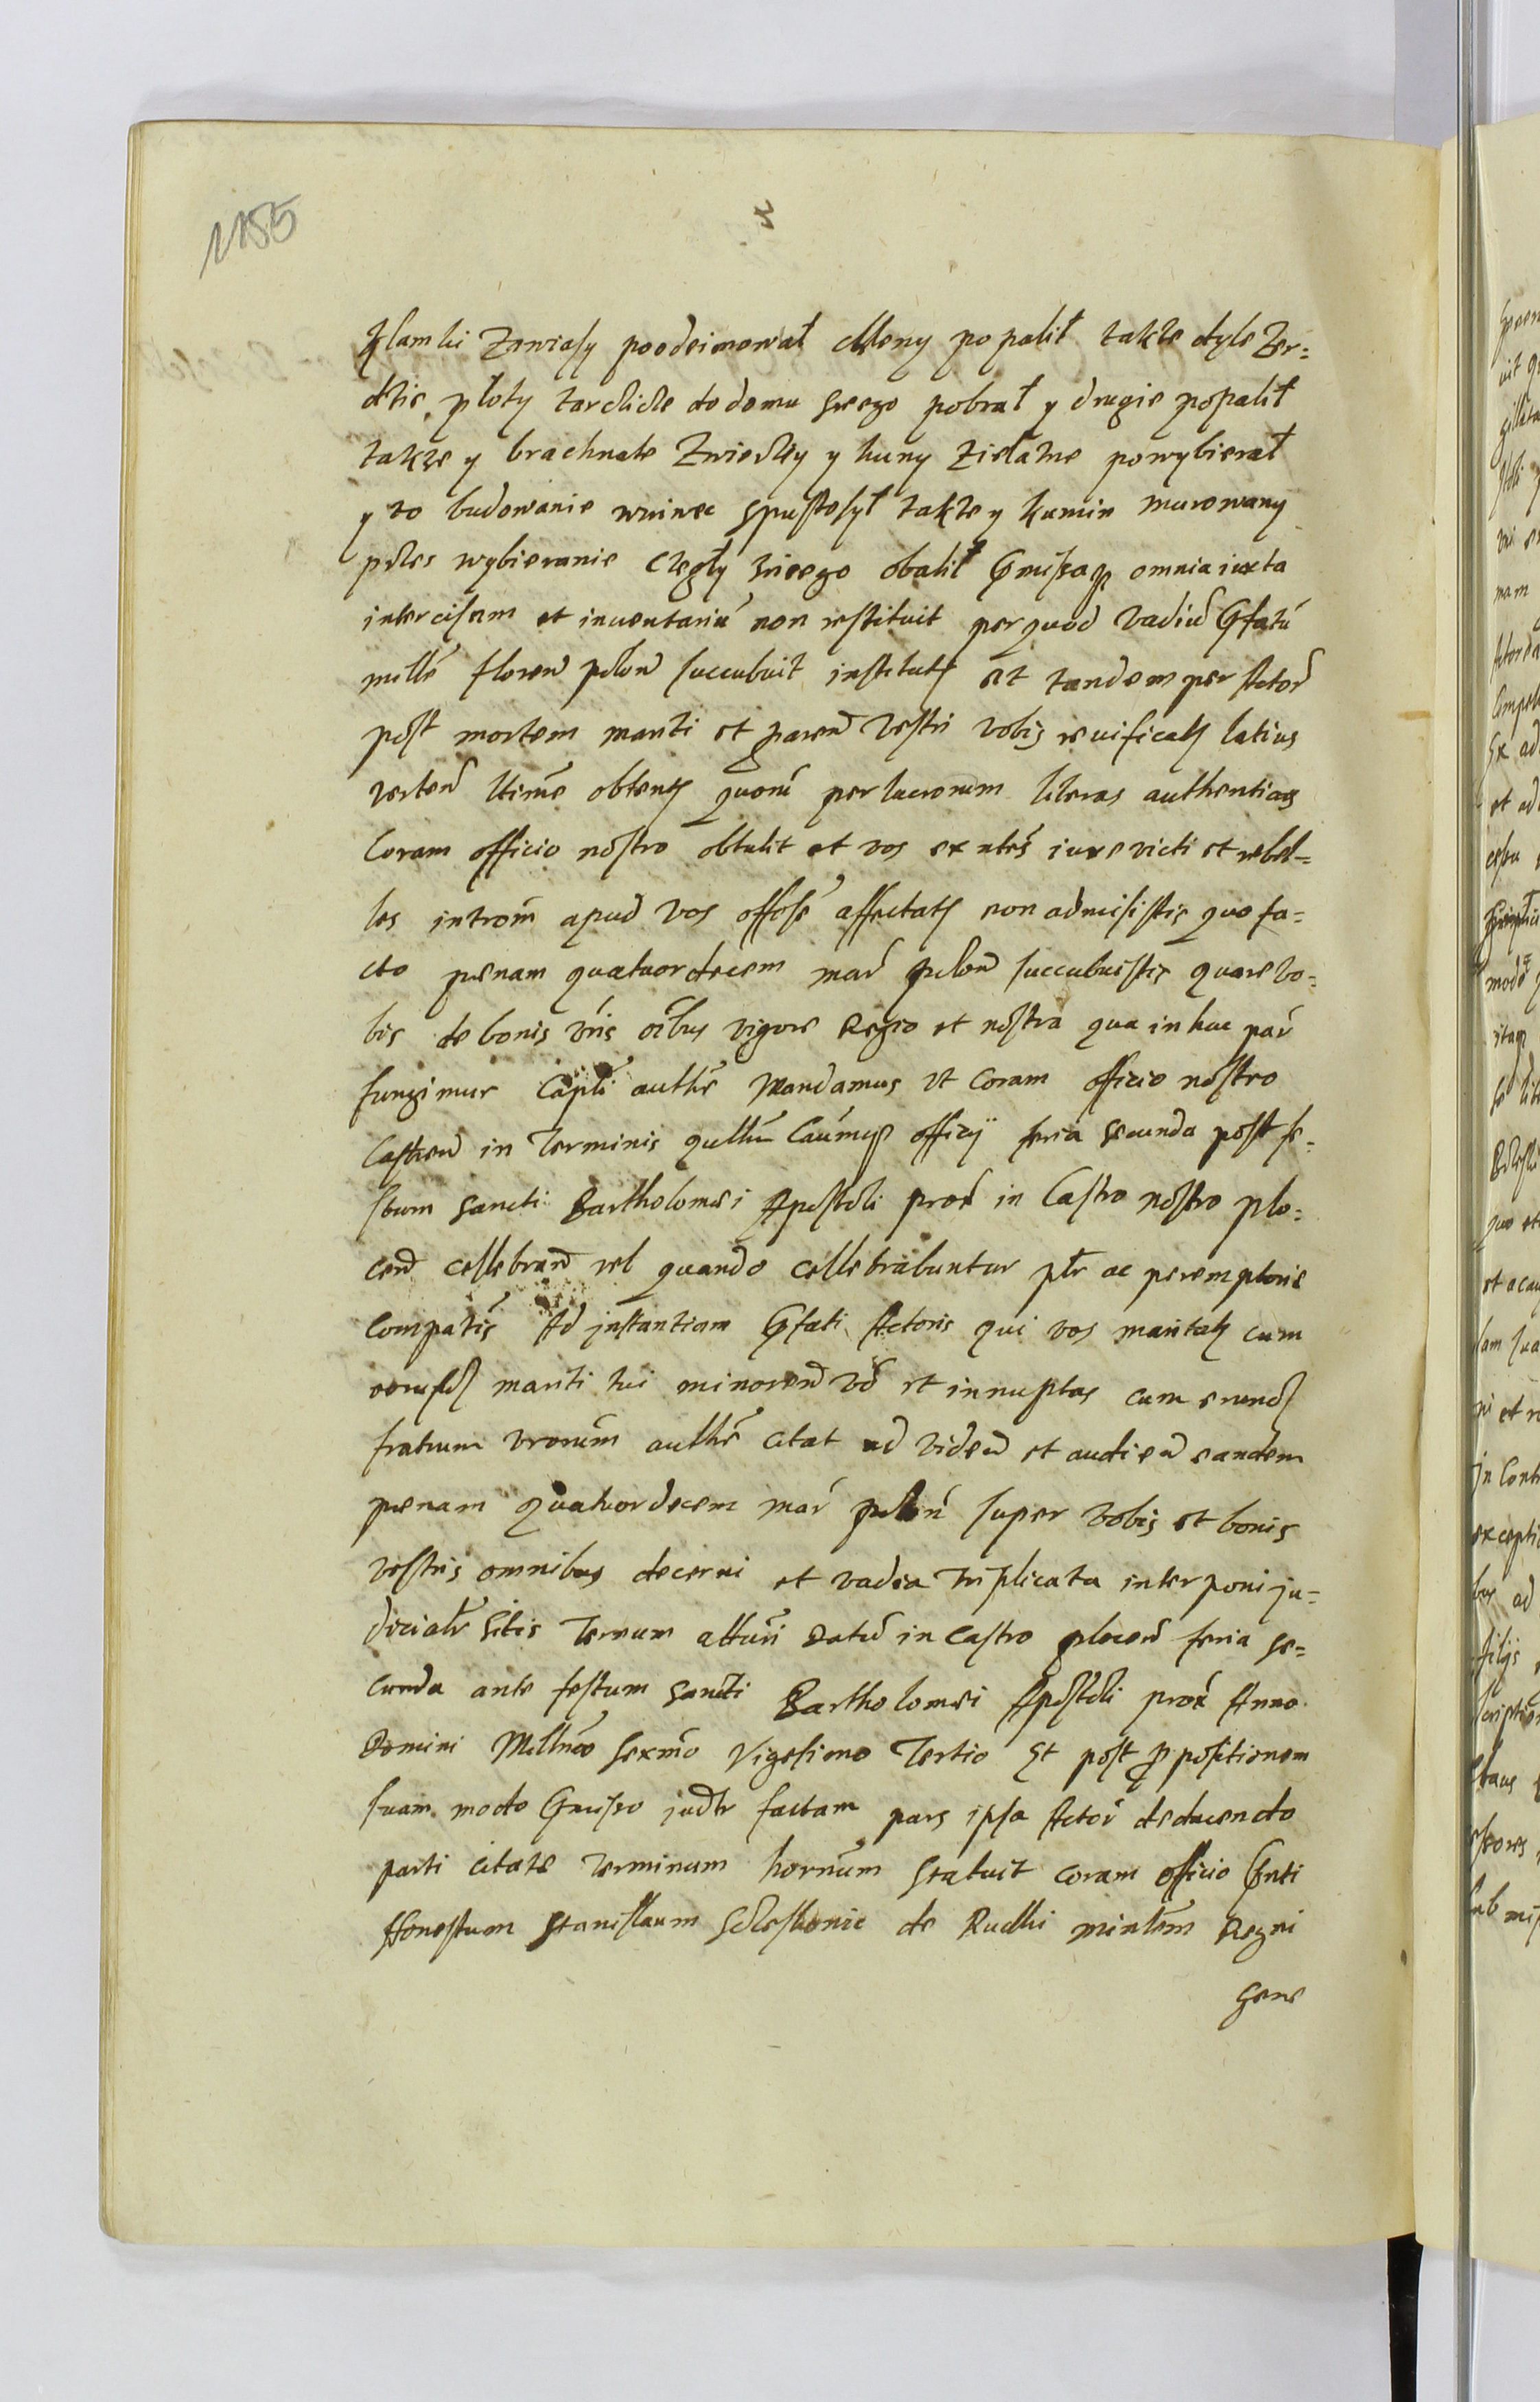 1155
klamki zawiasy poodeimował człony popalił takze dyle zer=
dzie płoty tarczicze do domu swego pobrał y drugie popalił
także y brachnale y kuny zielazne powybierał
y to budowanie wniwec spustosył takze y kumin murowany
przes wybieranie czegły zniego obalił Gmissaq omnia iuxta
intercisam et inuentariu non restituit per quod vadiu Gfatu
mille floren polon succubuit institutes et tandem per Actor
post mortem mariti et paren vestri vobis reuificates latius
verten ltime obtentes quoru per lucrorum literas authenticas
Coram officio nostro obtulit et vos extes iure victi et rebel=
les introm apud vos offose affectates non admisistis quo fa=
cto paenam quatuordecem mar polon succubuistis quare vo=
bis de bonis vris oibus vigore Regio et nostra qua in hac par
fungimur Capli authe Mandamus vt coram officio nostro
Castren in Terminis qullm Caumq officij feria secunda post fe=
stum sancti Bartholomei Apostoli prox in Castro nostro plo=
cen cellebran vel quando cellebrabuntur ptr ac peremptorie
compatis Ad jnstantiam Gfati Actoris qui vos maritates cum
mariti tui minoren vo et innuptas cum
fratrum vrorum authe citat ad viden et audien eandem
paenam quatuordecem mar polon super vobis et bonis
vestris omnibus decerni et vadia triplicata interponi ju=
dicialr Sitis Termum atturi Datu in Castro plocen feria se=
cunda ante festum sancti Bartholomei Apostoli prox Anno
Domini Millmo sexmo Vigesimo Tertio Et post ppositionem
suam modo Gmisso judlr factam pars ipsa Actor deducendo
parti citate Terminum hornum statuit coram officio Gnti
Honestum Stanislaum de Rudki minlem Regni
gene